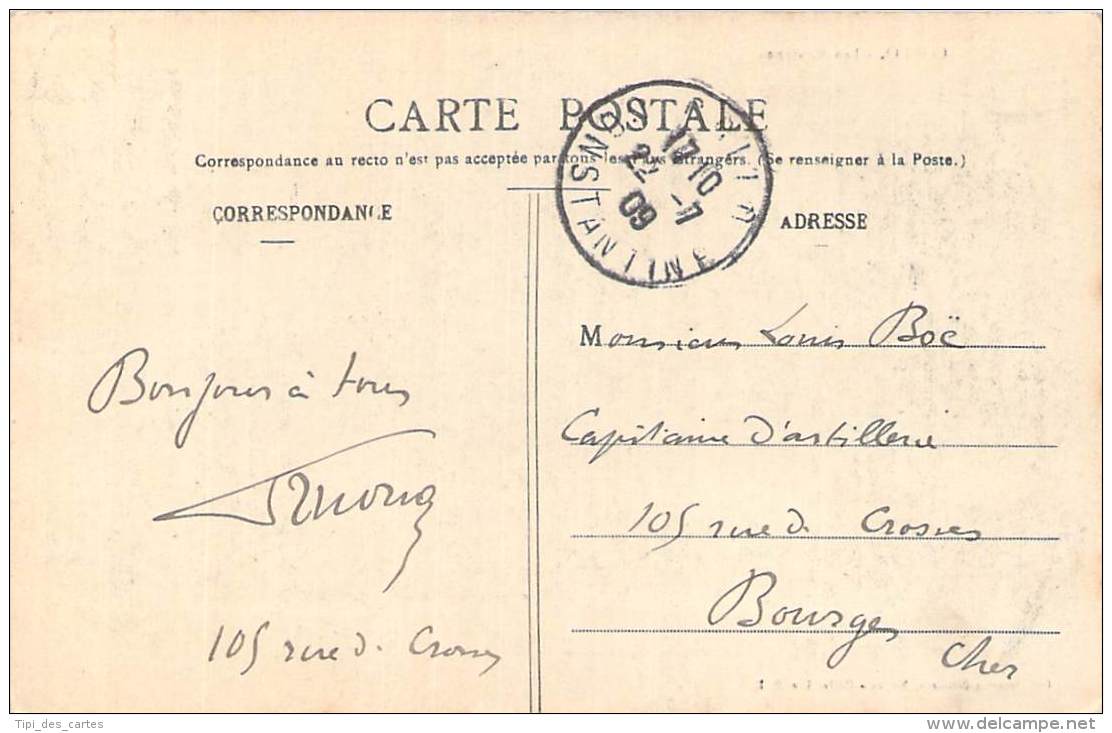 CARTE POSTALE
Correspondance au recto n'est pas acceptée par tous les Pays étrangers. (Se renseigner à la Poste.)
CORRESPONDANCE
ADRESSE
CONSTANTINE
17 10
22 -7
09
Bonjour à tous
105 rue de Crosses
Monsieur Louis Boë
Capitaine d'artillerie
105 rue de Crosses
Bourges
Cher
Tipi_des_cartes
delcampe.net